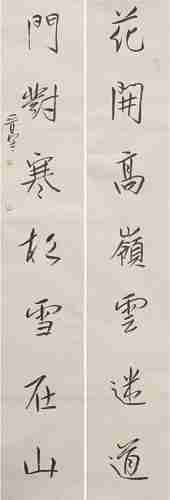 花開高嶺雲迷道
門對寒杉雪在山